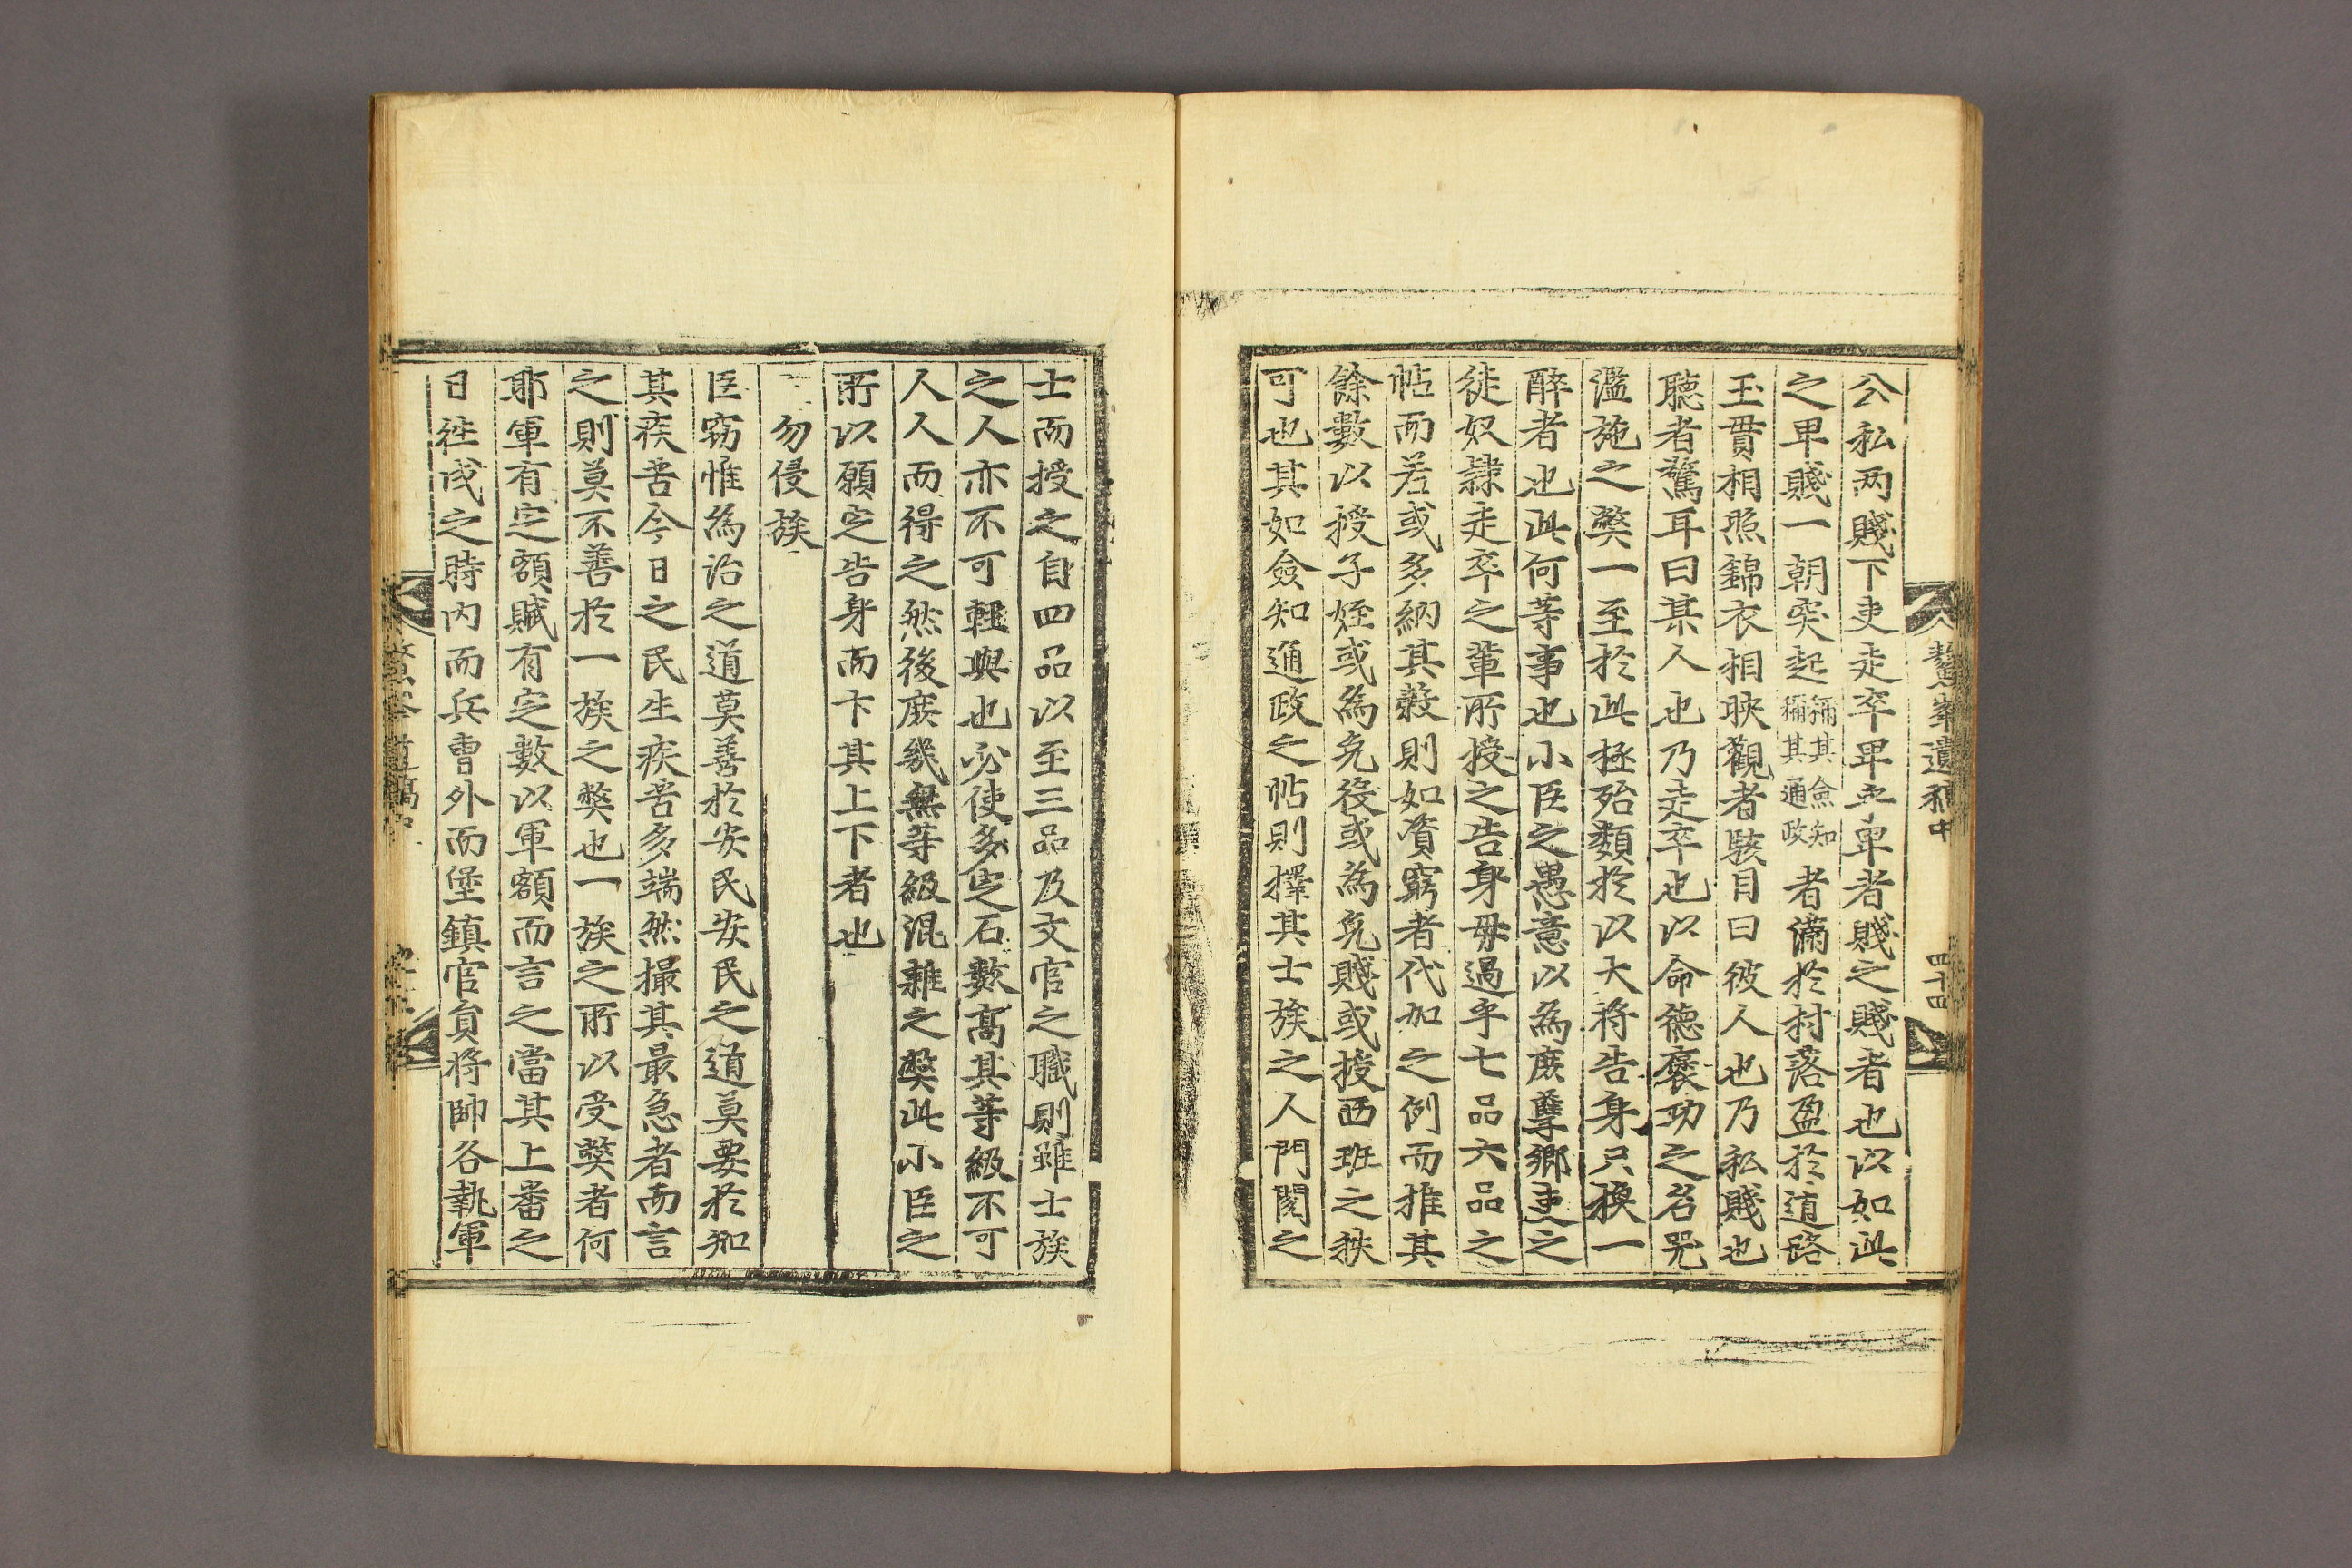 公私两賤下吏走卒卑卑者賤之賤者也以如此
之卑賤一朝突起稱其僉知稱其通政者滿於村落盈於道路
玉貫相照錦衣相映觀者駭目曰彼人也乃私賤也
聽者驚耳曰某人也乃走卒也以命德褒功之名器
濫施之弊一至於此極殆類於以大將告身只換一
醉者也此何等事也小臣之愚意以為庶孽鄉吏之
徒奴隷走卒之輩所授之告身毋過乎七品六品之
帖而若或多納其穀則如資窮者代加之例而推其
餘數以授子姪或為免役或為免賤或授西班之秩
可也其如僉知通政之帖則擇其士族之人門閥之
遺稿中
四十四
士而授之自四品以至三品及文官之職則雖士族
之人亦不可輕與也必使多定石數高其等級不可
人人而得之然後庶幾無等級混雜之弊此小臣之
所以願定告身而卞其上下者也
一勿侵族
臣竊惟為治之道莫善於安民安民之道莫要於知
其疾苦今日之民生疾苦多端然撮其最急者而言
之則莫不善於一族之弊也一族之所以受弊者何
耶軍有定額賦有定數以軍額而言之當其上番之
日徃戍之時内而兵曹外而堡鎮官員将帥各執軍